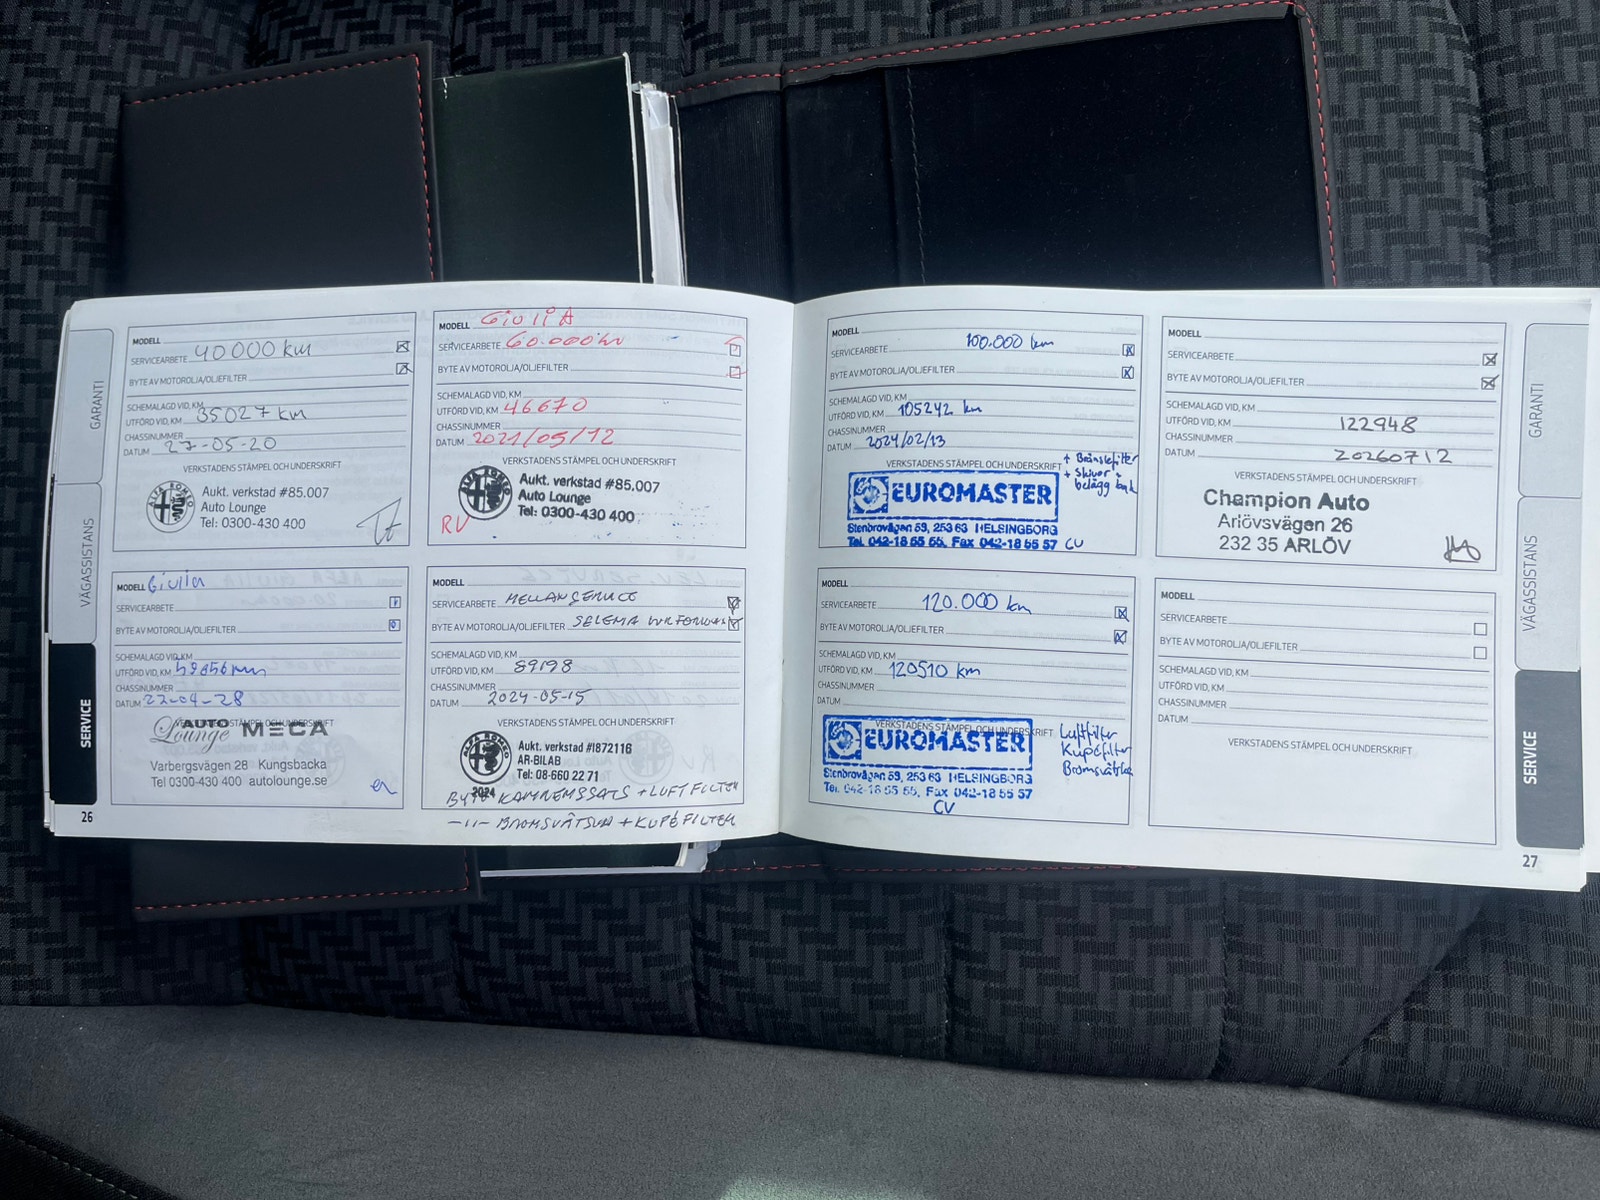 GARANTI
VÄGASSISTANS
SERVICE
26
MODELL
SERVICEARBETE 40000 km
BYTE AV MOTOROLJA/OLJEFILTER
SCHEMALAGD VID, KM
UTFÖRD VID, KM 35027 km
CHASSINUMMER
DATUM 27-05-20
VERKSTADENS STÄMPEL OCH UNDERSKRIFT
ALFA ROMEO
Aukt. verkstad #85.007
Auto Lounge
Tel: 0300-430 400
MODELL GIULIA
SERVICEARBETE 60.000
BYTE AV MOTOROLJA/OLJEFILTER
SCHEMALAGD VID, KM
UTFÖRD VID, KM 46670
CHASSINUMMER
DATUM 2021/05/12
VERKSTADENS STÄMPEL OCH UNDERSKRIFT
ALFA ROMEO
Aukt. verkstad #85.007
Auto Lounge
Tel: 0300-430 400
RV
MODELL Giulia
SERVICEARBETE
BYTE AV MOTOROLJA/OLJEFILTER
SCHEMALAGD VID, KM
UTFÖRD VID, KM
CHASSINUMMER
DATUM 22-04-28
VERKSTADENS STÄMPEL OCH UNDERSKRIFT
AUTO Lounge MECA
Varbergsvägen 28 Kungsbacka
Tel 0300-430 400 autolounge.se
MODELL
SERVICEARBETE MELLANSERVICE
BYTE AV MOTOROLJA/OLJEFILTER SELENIA
SCHEMALAGD VID, KM
UTFÖRD VID, KM 89198
CHASSINUMMER
DATUM 2024-05-15
VERKSTADENS STÄMPEL OCH UNDERSKRIFT
ALFA ROMEO
Aukt. verkstad #1872116
AR-BILAB
Tel: 08-660 22 71
2024
BYTE KAMREMSSATS + LUFTFILTER
-11- BROMSVÄTSKA + KUPÉFILTER
MODELL
SERVICEARBETE 100.000 km
BYTE AV MOTOROLJA/OLJEFILTER
SCHEMALAGD VID, KM
UTFÖRD VID, KM 105242 km
CHASSINUMMER
DATUM
VERKSTADENS STÄMPEL OCH UNDERSKRIFT
+ Bränslefilter
+ Skivor &
belägg bak
EUROMASTER
Stenbrovägen 59, 253 63 HELSINGBORG
Tel. 042-18 55 55, Fax 042-18 55 57
CV
MODELL
SERVICEARBETE
BYTE AV MOTOROLJA/OLJEFILTER
SCHEMALAGD VID, KM
UTFÖRD VID, KM 122948
CHASSINUMMER
DATUM 20260712
VERKSTADENS STÄMPEL OCH UNDERSKRIFT
Champion Auto
Arlövsvägen 26
232 35 ARLÖV
MODELL
SERVICEARBETE 120.000 km
BYTE AV MOTOROLJA/OLJEFILTER
SCHEMALAGD VID, KM
UTFÖRD VID, KM 120510 km
CHASSINUMMER
DATUM
VERKSTADENS STÄMPEL OCH UNDERSKRIFT
EUROMASTER
Stenbrovägen 59, 253 63 HELSINGBORG
Tel. 042-18 55 55, Fax 042-18 55 57
CV
Luftfilter
Kupéfilter
Bromsvätska
MODELL
SERVICEARBETE
BYTE AV MOTOROLJA/OLJEFILTER
SCHEMALAGD VID, KM
UTFÖRD VID, KM
CHASSINUMMER
DATUM
VERKSTADENS STÄMPEL OCH UNDERSKRIFT
GARANTI
VÄGASSISTANS
SERVICE
27